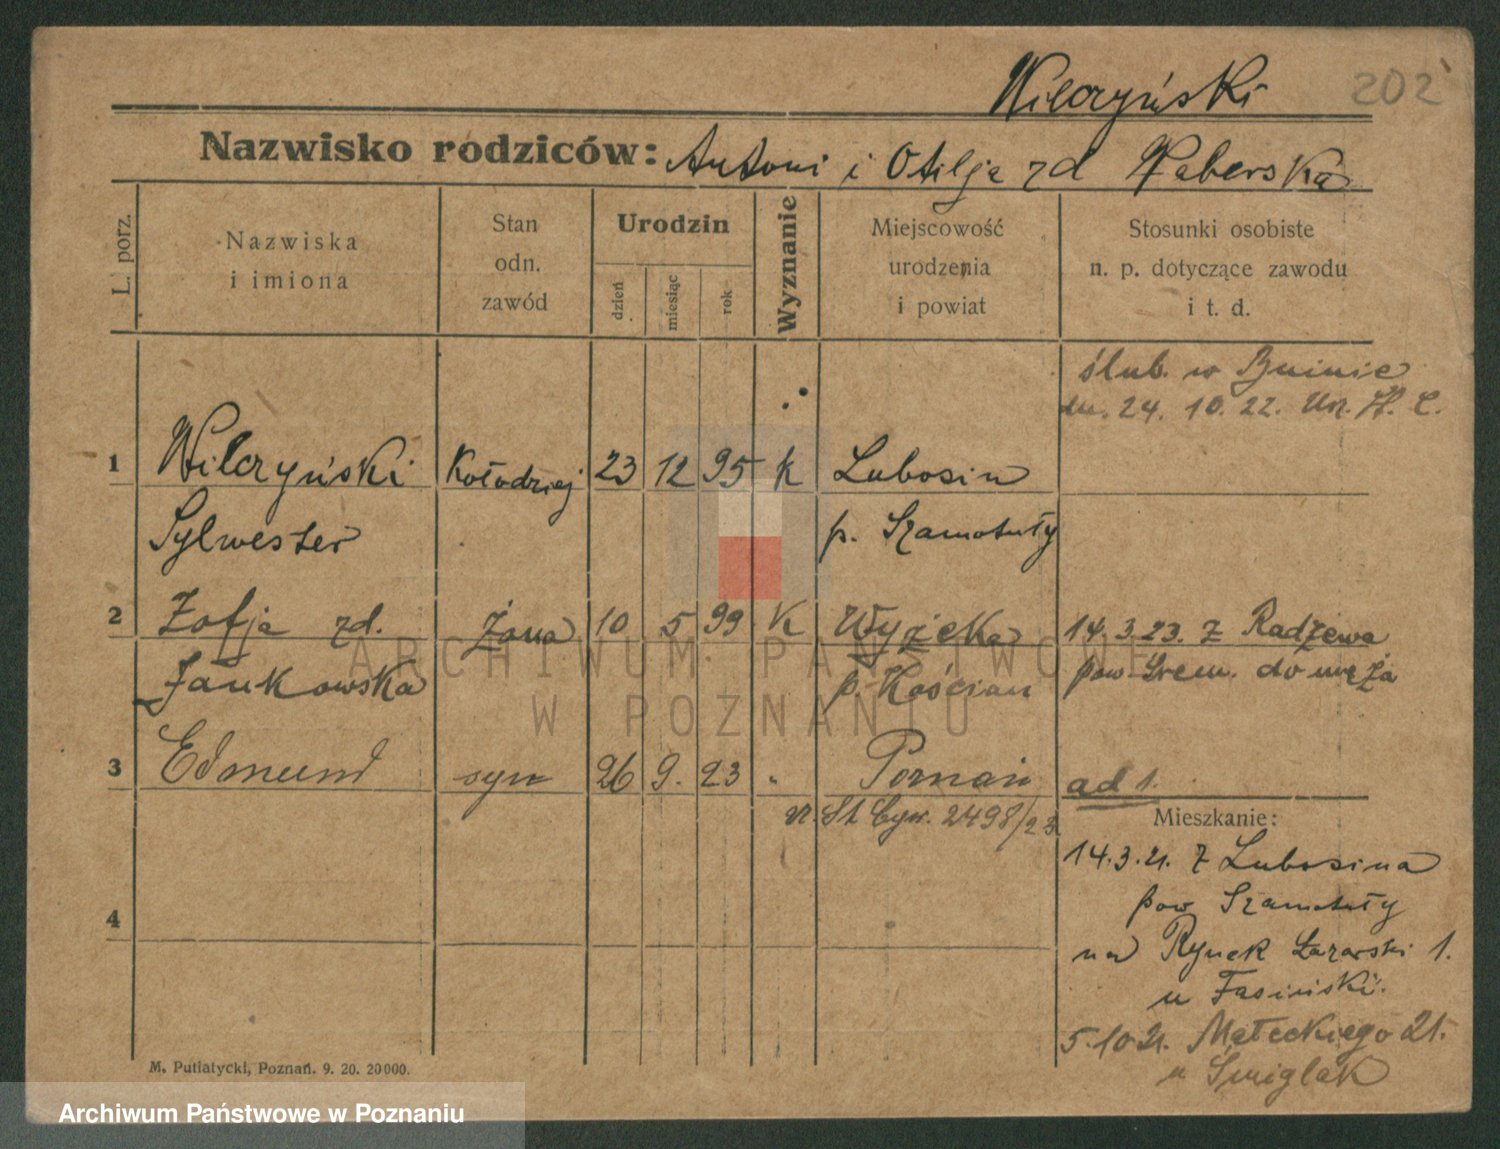 Wilczyński 202
Nazwisko rodziców: Antoni i Otilja zd Waberska
L. porz.
Nazwiska
i imiona
Stan
odn.
zawód
Urodzin
dzień
miesiąc
rok
Wyznanie
Miejscowość
urodzenia
i powiat
Stosunki osobiste
n. p. dotyczące zawodu
i t. d.
ślub. w Bninie
dn. 24. 10. 22. Urz. St. C.
1 Wilczyński Kołodziej 23 12 95 k Lubosin
Sylwester p. Szamotuły
2 Zofja zd. żona 10 5 99 k Wyżeka 14.3.23. z Radzewa
Jankowska p. Kościan pow. Śrem. do męża
3 Edmund syn 26 9. 23 " Poznań ad 1.
St Cyw. 2498/23
Mieszkanie:
14.3.21. z Lubosina
pow Szamotuły
na Rynek Łazarski 1.
u Jasiński.
5.10.21. Małeckiego 21.
u Śmiglak
4
M. Putiatycki, Poznań. 9. 20. 20000.
ARCHIWUM PAŃSTWOWE
W POZNANIU
Archiwum Państwowe w Poznaniu